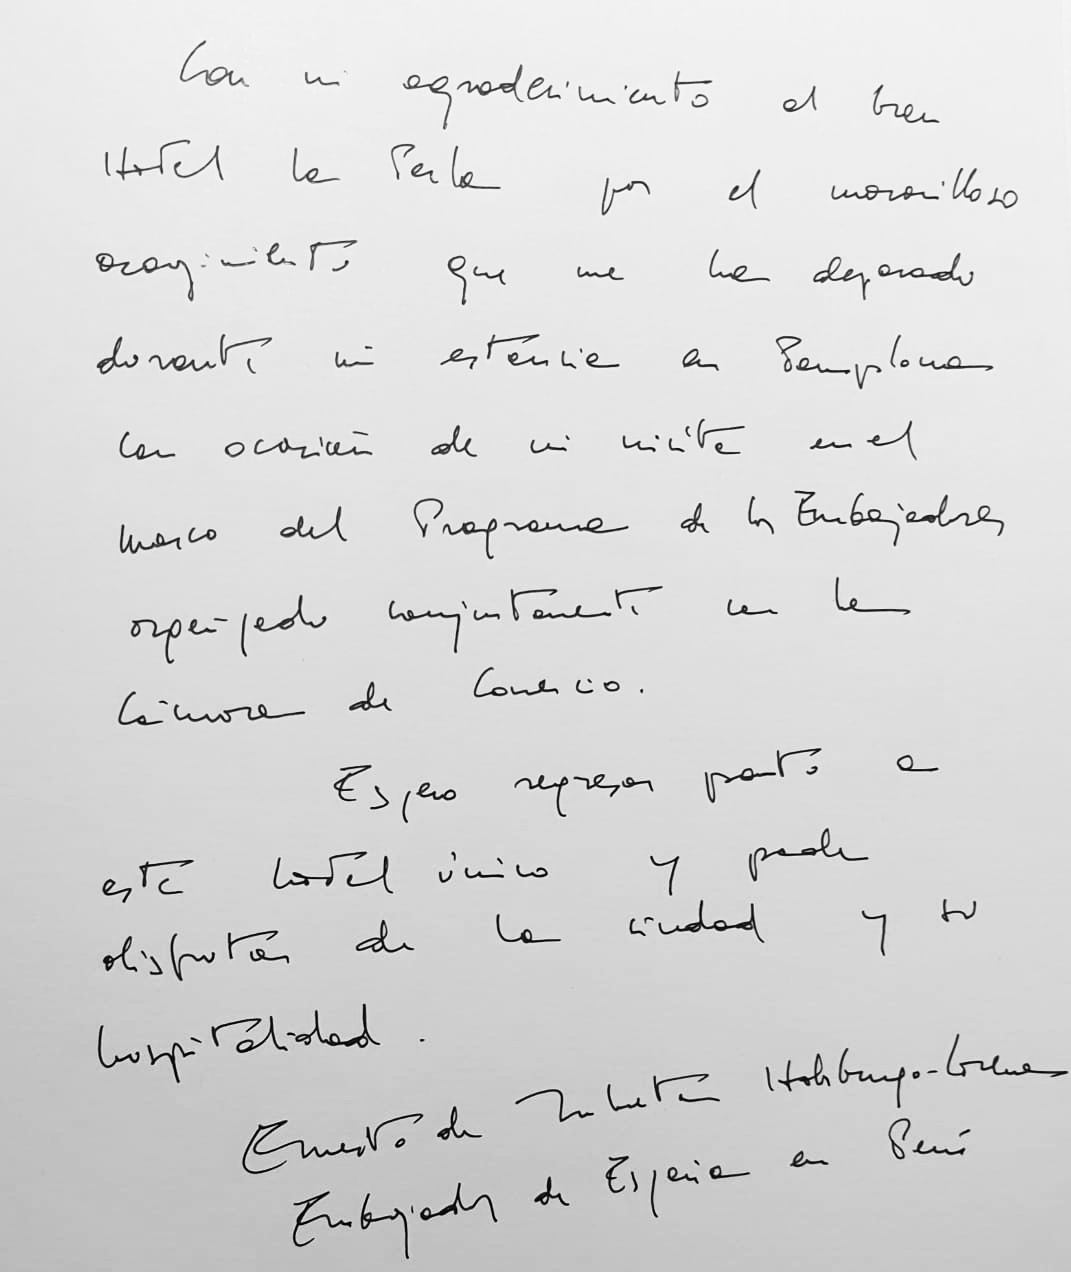 Con mi agradecimiento al buen
Hotel La Perla por el maravilloso
acogimiento que me ha deparado
durante mi estancia en Pamplona
con ocasión de mi visita en el
marco del Programa de los Embajadores
organizado conjuntamente con la
Cámara de Comercio.
Espero regresar pronto a
este hotel único y poder
disfrutar de la ciudad y su
hospitalidad.
Ernesto de Zulueta Habsburgo-Lorena
Embajador de España en Perú